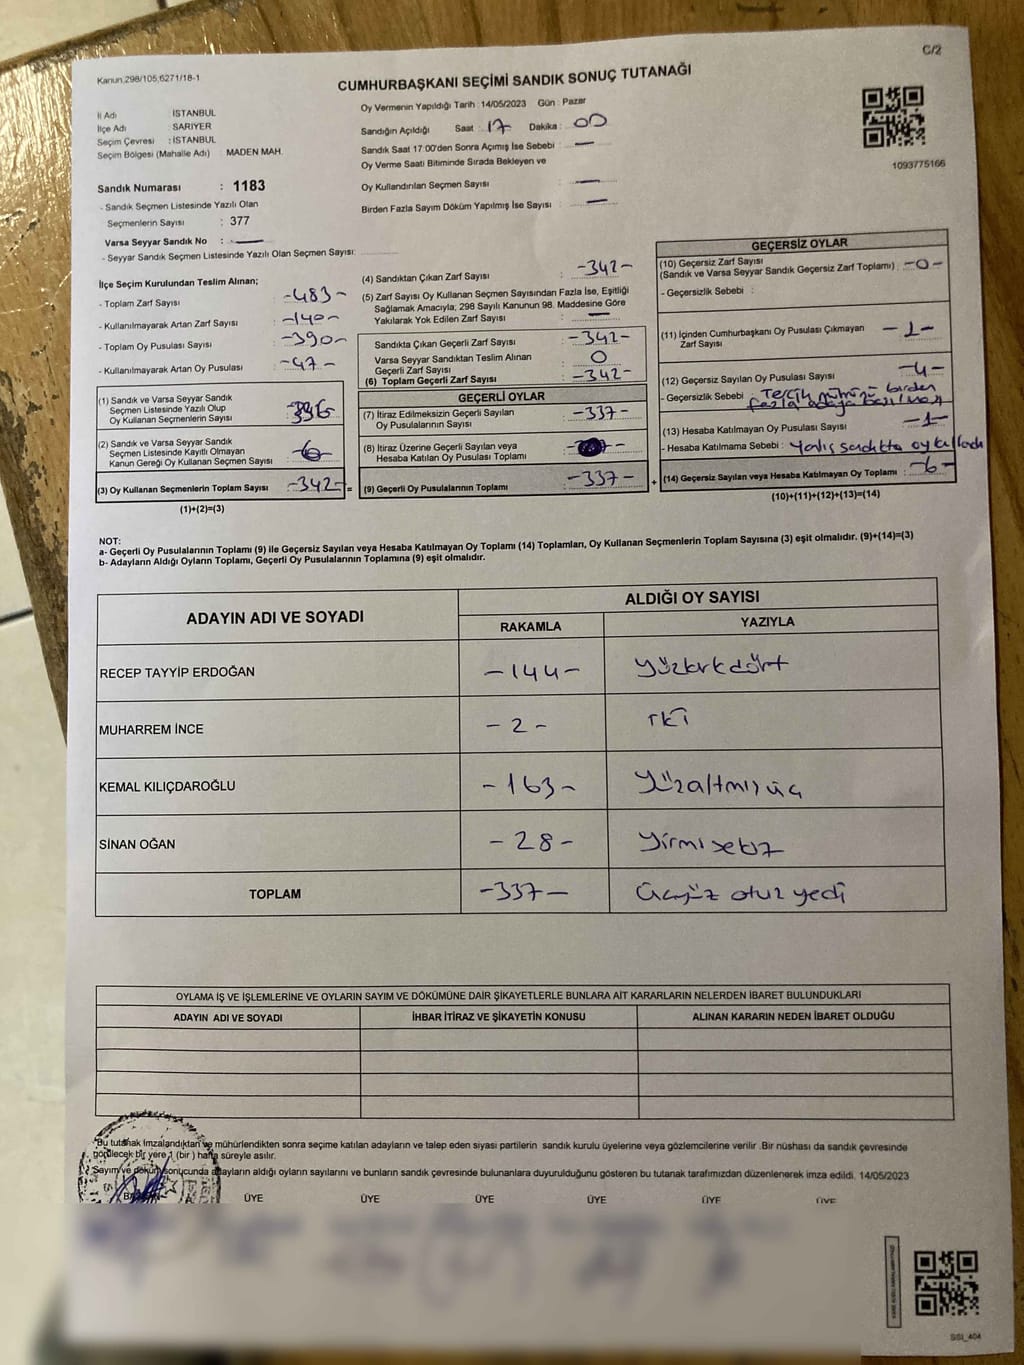 C/2
Kanun,298/105;6271/18-1
CUMHURBAŞKANI SEÇİMİ SANDIK SONUÇ TUTANAĞI
İl Adı : İSTANBUL
İlçe Adı : SARIYER
Seçim Çevresi : İSTANBUL
Seçim Bölgesi (Mahalle Adı) : MADEN MAH.
Sandık Numarası : 1183
- Sandık Seçmen Listesinde Yazılı Olan
Seçmenlerin Sayısı : 377
Varsa Seyyar Sandık No : —
- Seyyar Sandık Seçmen Listesinde Yazılı Olan Seçmen Sayısı:
Oy Vermenin Yapıldığı Tarih : 14/05/2023 Gün : Pazar
Sandığın Açıldığı Saat : 17 Dakika : 00
Sandık Saat 17:00'den Sonra Açımış İse Sebebi : —
Oy Verme Saati Bitiminde Sırada Bekleyen ve
Oy Kullandırılan Seçmen Sayısı : —
Birden Fazla Sayım Döküm Yapılmış İse Sayısı : —
1093775166
İlçe Seçim Kurulundan Teslim Alınan;
- Toplam Zarf Sayısı : -483-
- Kullanılmayarak Artan Zarf Sayısı : -140-
- Toplam Oy Pusulası Sayısı : -390-
- Kullanılmayarak Artan Oy Pusulası : -47-
(1) Sandık ve Varsa Seyyar Sandık
Seçmen Listesinde Yazılı Olup
Oy Kullanan Seçmenlerin Sayısı :
(2) Sandık ve Varsa Seyyar Sandık
Seçmen Listesinde Kayıtlı Olmayan
Kanun Gereği Oy Kullanan Seçmen Sayısı :
(3) Oy Kullanan Seçmenlerin Toplam Sayısı : -342- =
(1)+(2)=(3)
(4) Sandıktan Çıkan Zarf Sayısı : -342-
(5) Zarf Sayısı Oy Kullanan Seçmen Sayısından Fazla İse, Eşitliği
Sağlamak Amacıyla; 298 Sayılı Kanunun 98. Maddesine Göre
Yakılarak Yok Edilen Zarf Sayısı : —
Sandıkta Çıkan Geçerli Zarf Sayısı : -342-
Varsa Seyyar Sandıktan Teslim Alınan
Geçerli Zarf Sayısı : 0
(6) Toplam Geçerli Zarf Sayısı : -342-
GEÇERLİ OYLAR
(7) İtiraz Edilmeksizin Geçerli Sayılan
Oy Pusulalarının Sayısı : -337-
(8) İtiraz Üzerine Geçerli Sayılan veya
Hesaba Katılan Oy Pusulası Toplamı :
(9) Geçerli Oy Pusulalarının Toplamı : -337- +
GEÇERSİZ OYLAR
(10) Geçersiz Zarf Sayısı
(Sandık ve Varsa Seyyar Sandık Geçersiz Zarf Toplamı) : -0-
- Geçersizlik Sebebi :
(11) İçinden Cumhurbaşkanı Oy Pusulası Çıkmayan
Zarf Sayısı : -1-
(12) Geçersiz Sayılan Oy Pusulası Sayısı : -4-
- Geçersizlik Sebebi : Tercih mührü birden
fazla adaya basılması
(13) Hesaba Katılmayan Oy Pusulası Sayısı : -1-
- Hesaba Katılmama Sebebi : Yanlış sandıkta oy kullandı
(14) Geçersiz Sayılan veya Hesaba Katılmayan Oy Toplamı : -6-
(10)+(11)+(12)+(13)=(14)
NOT:
a- Geçerli Oy Pusulalarının Toplamı (9) ile Geçersiz Sayılan veya Hesaba Katılmayan Oy Toplamı (14) Toplamları, Oy Kullanan Seçmenlerin Toplam Sayısına (3) eşit olmalıdır. (9)+(14)=(3)
b- Adayların Aldığı Oyların Toplamı, Geçerli Oy Pusulalarının Toplamına (9) eşit olmalıdır.
ADAYIN ADI VE SOYADI ALDIĞI OY SAYISI
RAKAMLA YAZIYLA
RECEP TAYYİP ERDOĞAN -144- Yüzkırkdört
MUHARREM İNCE -2- İki
KEMAL KILIÇDAROĞLU -163- Yüzaltmışüç
SİNAN OĞAN -28- Yirmisekiz
TOPLAM -337- Üçyüz otuz yedi
OYLAMA İŞ VE İŞLEMLERİNE VE OYLARIN SAYIM VE DÖKÜMÜNE DAİR ŞİKAYETLERLE BUNLARA AİT KARARLARIN NELERDEN İBARET BULUNDUKLARI
ADAYIN ADI VE SOYADI İHBAR İTİRAZ VE ŞİKAYETİN KONUSU ALINAN KARARIN NEDEN İBARET OLDUĞU
Bu tutanak imzalandıktan ve mühürlendikten sonra seçime katılan adayların ve talep eden siyasi partilerin sandık kurulu üyelerine veya gözlemcilerine verilir .Bir nüshası da sandık çevresinde
görülecek bir yere 1 (bir ) hafta süreyle asılır.
Sayım ve döküm sonucunda adayların aldığı oyların sayılarını ve bunların sandık çevresinde bulunanlara duyurulduğunu gösteren bu tutanak tarafımızdan düzenlenerek imza edildi. 14/05/2023
BAŞKAN ÜYE ÜYE ÜYE ÜYE ÜYE ÜYE
SSI_404